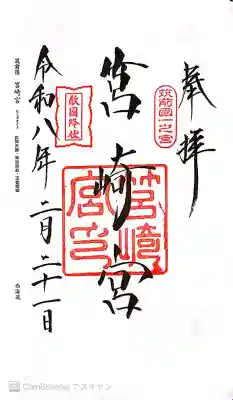 奉拝
筑前國一之宮
筥崎宮
筥崎宮印
敵國降伏
令和八年二月二十一日
筑前國 筥崎宮
西海道
CamScanner でスキャン